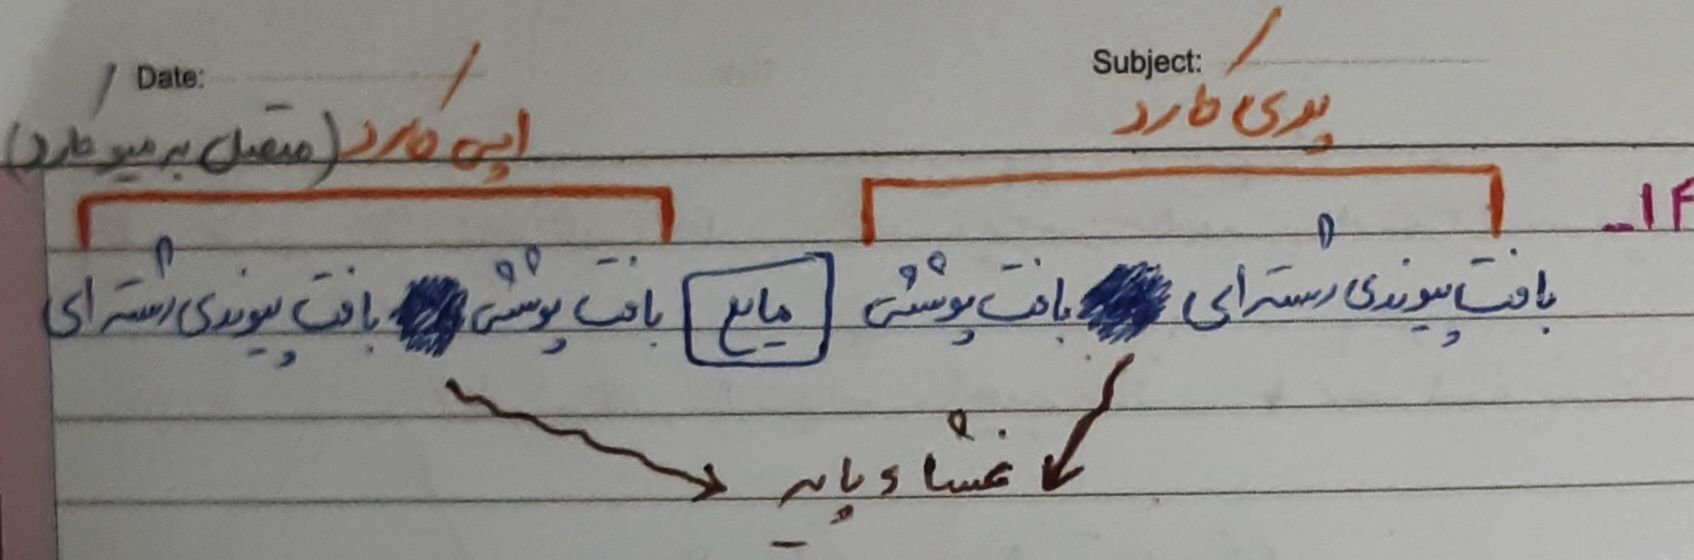 Subject:
Date:
پری کارد
اپی کارد (متصل به میوکارد)
۱۴_
بافت پیوندی رشته‌ای بافت پوششی مایع بافت پوششی بافت پیوندی رشته‌ای
غشاء پایه